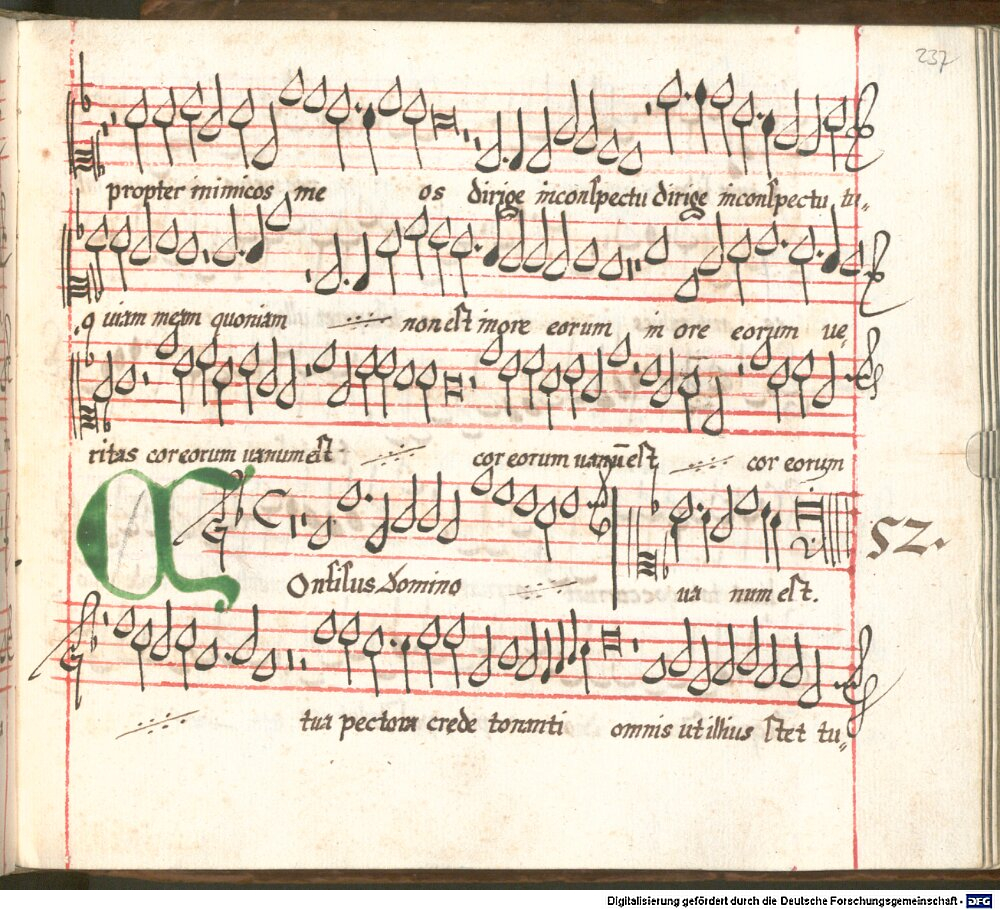 237
propter inimicos me os dirige inconspectu dirige inconspectu tu„
q uiam meam quoniam non est in ore eorum in ore eorum ue„
ritas cor eorum uanum est cor eorum uanū est cor eorum
COnfisus Domino ua num est.
52.
tua pectora crede tonanti omnis ut illius stet tu„
Digitalisierung gefördert durch die Deutsche Forschungsgemeinschaft - DFG